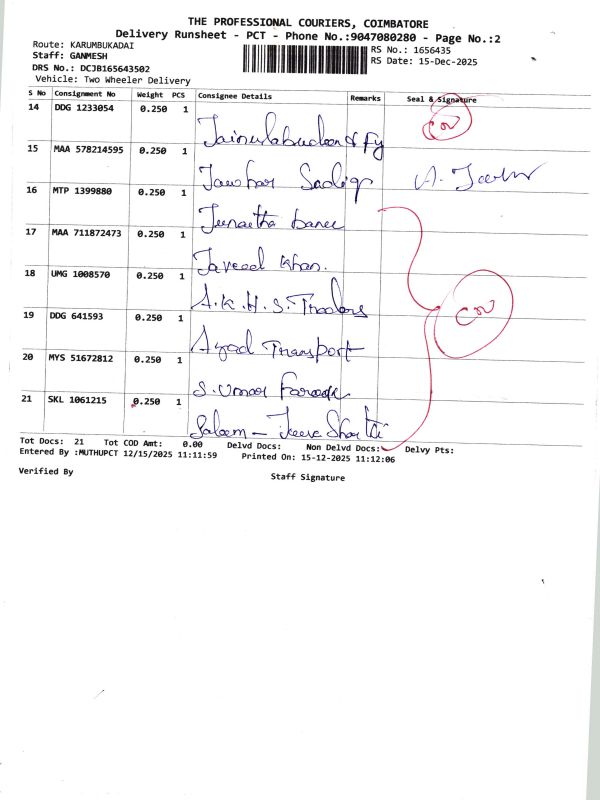 THE PROFESSIONAL COURIERS, COIMBATORE
Delivery Runsheet - PCT - Phone No.:9047080280 - Page No.:2
Route: KARUMBUKADAI
RS No.: 1656435
Staff: GANMESH
RS Date: 15-Dec-2025
DRS No.: DCJB165643502
Vehicle: Two Wheeler Delivery
S No Consignment No Weight PCS Consignee Details Remarks Seal & Signature
14 DDG 1233054 0.250 1
15 MAA 578214595 0.250 1 Jawhar Sadiq
16 MTP 1399880 0.250 1 Banu
17 MAA 711872473 0.250 1 Javeed Khan.
18 UMG 1008570 0.250 1 A.K.H.S. Traders
19 DDG 641593 0.250 1 Azad Transport
20 MYS 51672812 0.250 1 S. Umar Farook
21 SKL 1061215 0.250 1 Saleem -
Tot Docs: 21 Tot COD Amt: 0.00 Delvd Docs: Non Delvd Docs: Delvy Pts:
Entered By :MUTHUPCT 12/15/2025 11:11:59 Printed On: 15-12-2025 11:12:06
Verified By Staff Signature